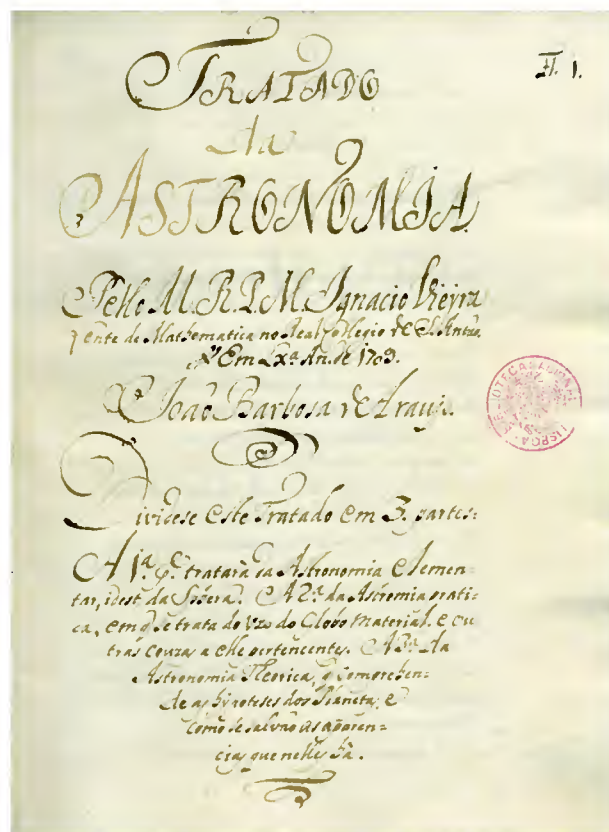 TRATADO
H. 1.
da
ASTRONOMIA.
Pello M.R.P.M. Ignacio Vieyra
Lente de Mathematica no Real Collegio de S. Antão.
Em Lxª An. de 1709.
João Barbosa de Araujo.
Dividese este Tratado em 3. partes:
A 1ª. q̃ tratarà da Astronomia Elemen-
tar, idest, da Sphera. A 2ª. da Astromia prati-
ca, em q̃ se trata do vzo do Globo material, e ou
tras couzas a elle pertencentes. A 3ª. da
Astronomia Theorica, q̃ comprehen-
de as hypoteses dos Planetas, e
como se salvão as aparen-
cias que nelles hà.
BIBLIOTECA NACIONAL
LISBOA